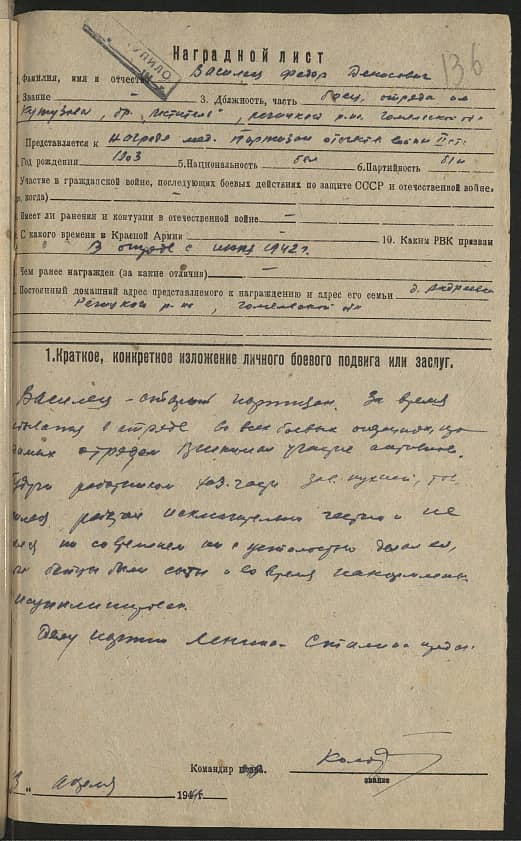 136
Наградной лист
Фамилия, имя и отчество Василец Федор Денисович
2. Звание — 3. Должность, часть боец отряда им
Кутузова, бр. "Мститель", Речицкой р-на, Гомельской обл
Представляется к награде мед. Партизан отечеств войны II ст.
Год рождения 1903 5. Национальность бел 6. Партийность б/п
Участие в гражданской войне, последующих боевых действиях по защите СССР и отечественной войне,
когда) —
Имеет ли ранения и контузии в отечественной войне —
С какого времени в Красной Армии — 10. Каким РВК призван
В отряде с июня 1942 г.
Чем ранее награжден (за какие отличия) —
Постоянный домашний адрес представляемого к награждению и адрес его семьи д. Андреевка
Речицкой р-на, Гомельской обл
1. Краткое, конкретное изложение личного боевого подвига или заслуг.
Василец - старый партизан. За время
в отряде во всех боевых операциях,
отрядом принимал участие активное.
Будучи работником хоз. части зав. кухней,
работал исключительно честно и не
ни со временем ни с усталостью делал всё,
бойцы были сыты и во время накормлены.
Делу партии Ленина - Сталина предан.
Командир
звание
апреля
194